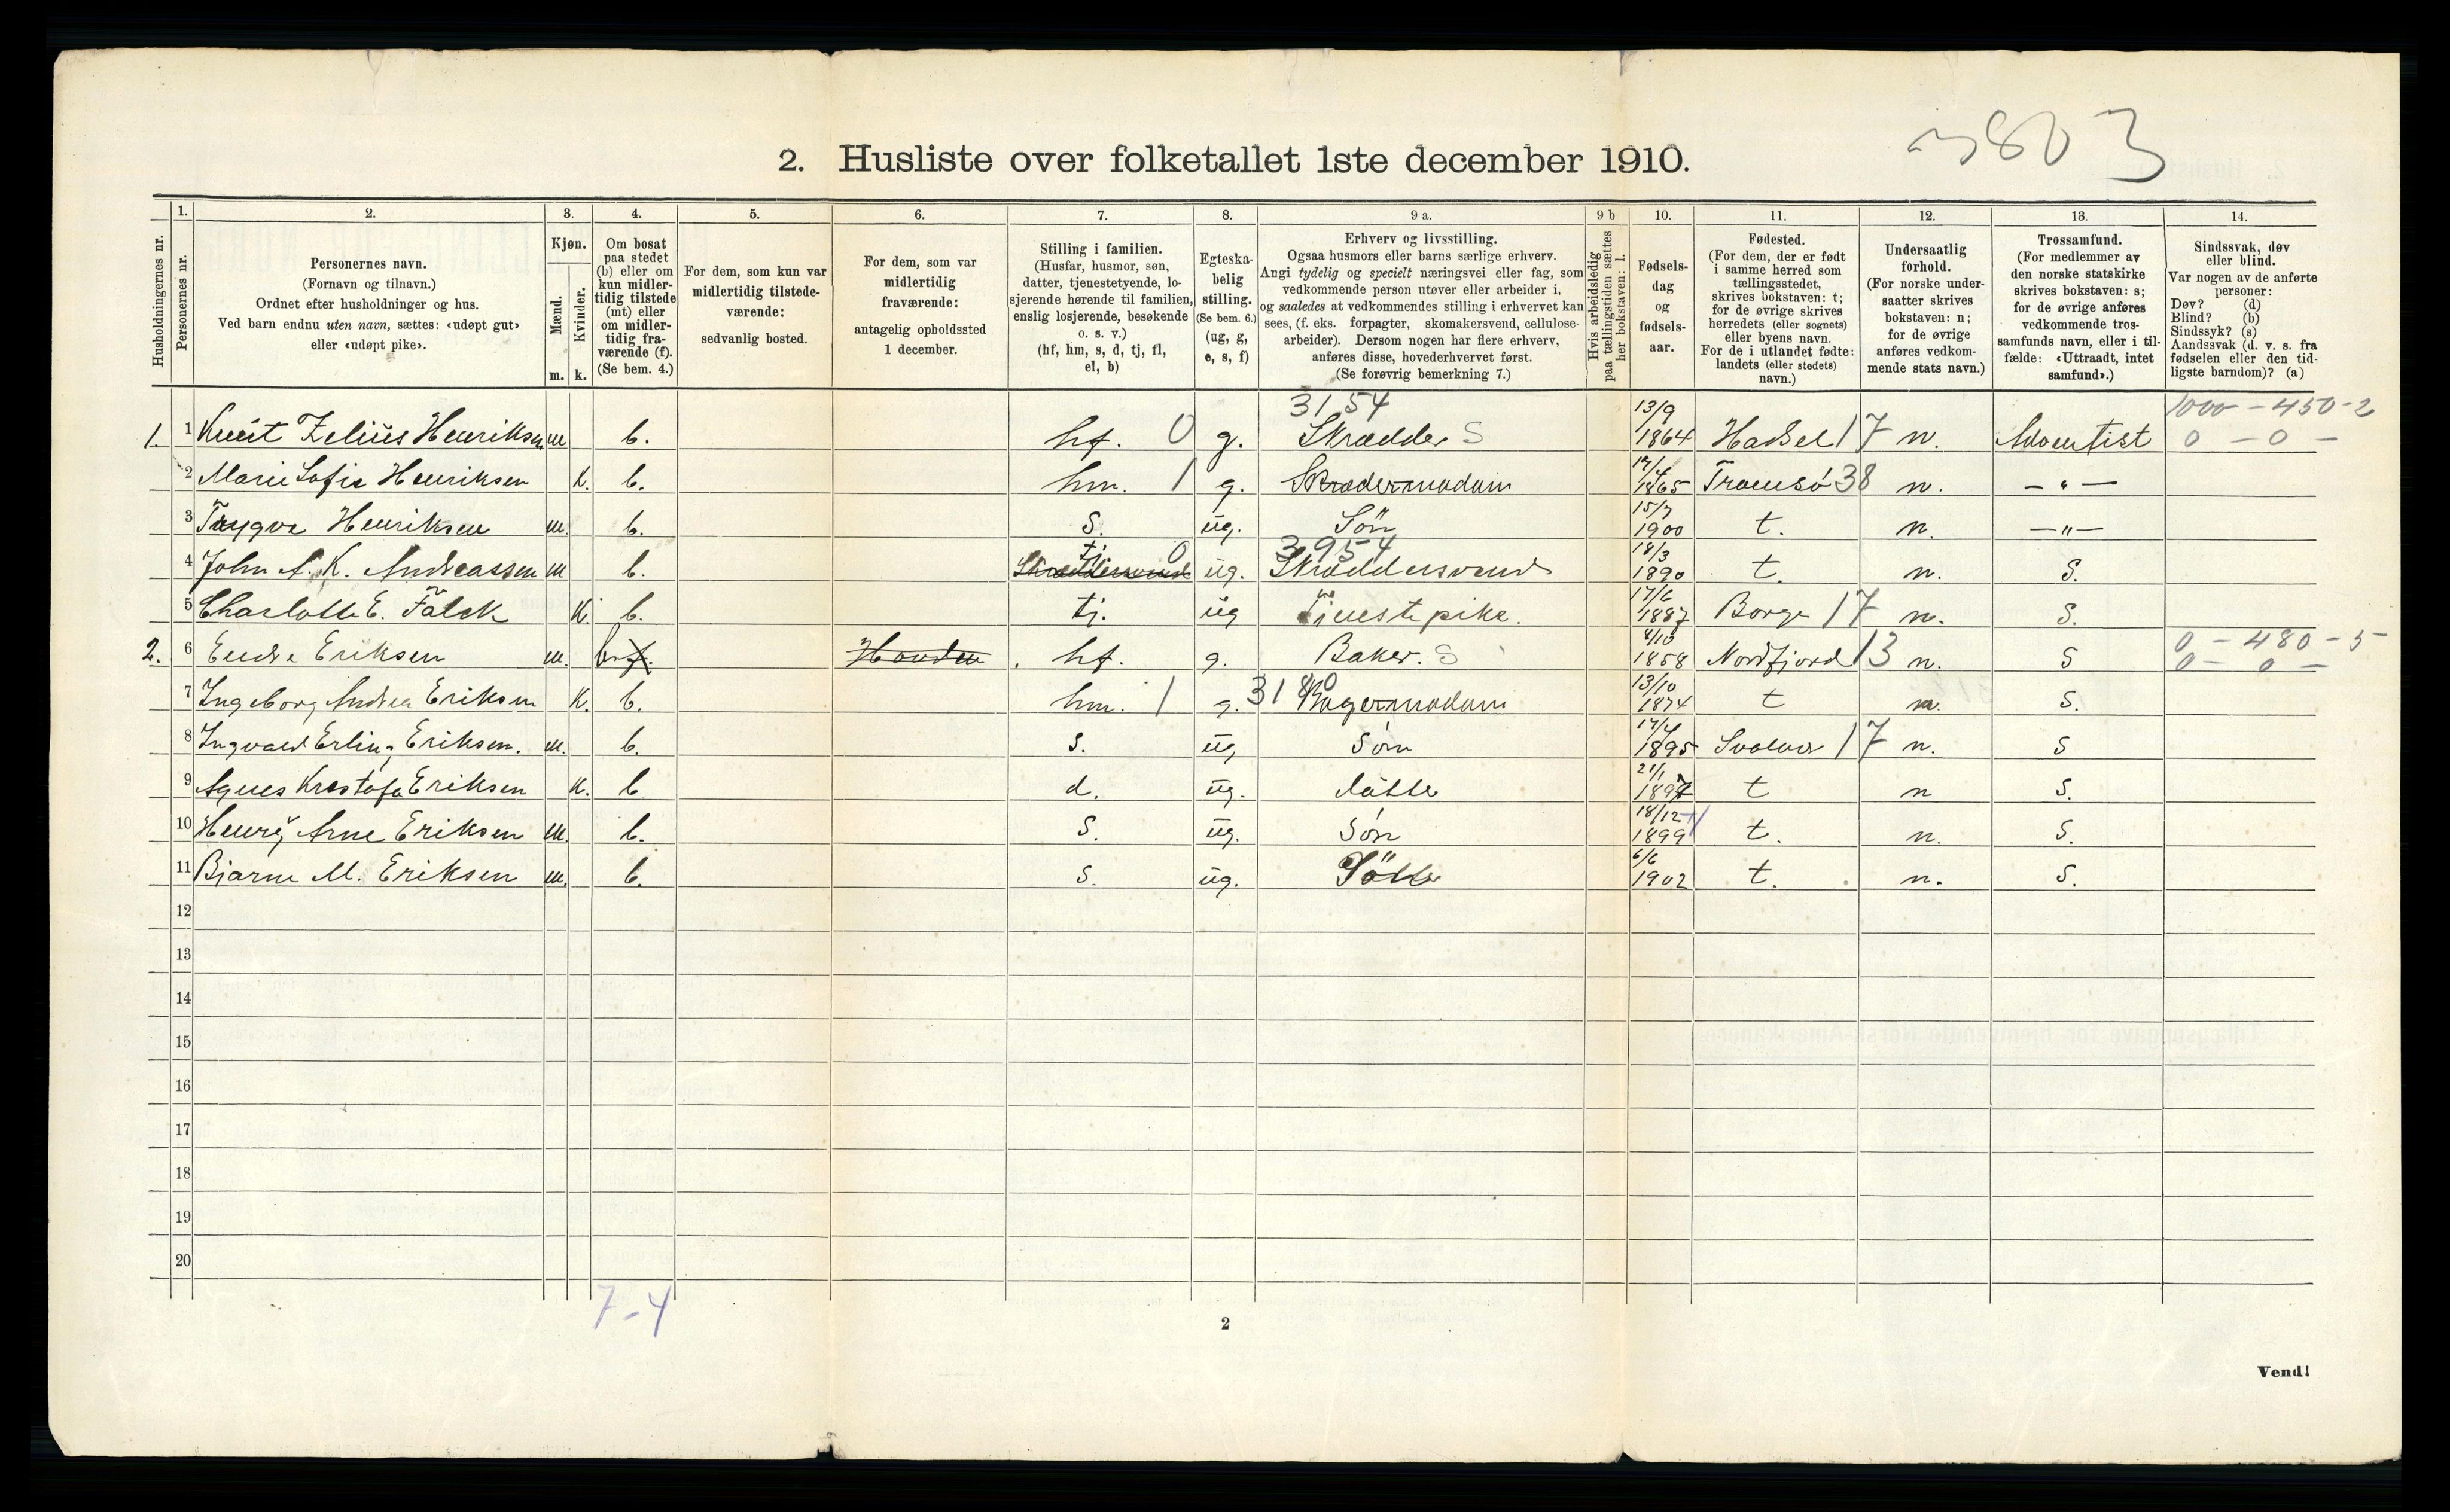 3803
2. Husliste over folketallet 1ste december 1910.
Husholdningernes nr.
1.
Personernes nr.
2.
Personernes navn.
(Fornavn og tilnavn.)
Ordnet efter husholdninger og hus.
Ved barn endnu uten navn, sættes: «udøpt gut»
eller «udøpt pike».
3.
Kjøn.
Mænd.
Kvinder.
m. k.
4.
Om bosat
paa stedet
(b) eller om
kun midler-
tidig tilstede
(mt) eller
om midler-
tidig fra-
værende (f).
(Se bem. 4.)
5.
For dem, som kun var
midlertidig tilstede-
værende:
sedvanlig bosted.
6.
For dem, som var
midlertidig
fraværende:
antagelig opholdssted
1 december.
7.
Stilling i familien.
(Husfar, husmor, søn,
datter, tjenestetyende, lo-
sjerende hørende til familien,
enslig losjerende, besøkende
o. s. v.)
(hf, hm, s, d, tj, fl,
el, b)
8.
Egteska-
belig
stilling.
(Se bem. 6.)
(ug, g,
e, s, f)
9 a.
Erhverv og livsstilling.
Ogsaa husmors eller barns særlige erhverv.
Angi tydelig og specielt næringsvei eller fag, som
vedkommende person utøver eller arbeider i,
og saaledes at vedkommendes stilling i erhvervet kan
sees, (f. eks. forpagter, skomakersvend, cellulose-
arbeider). Dersom nogen har flere erhverv,
anføres disse, hovederhvervet først.
(Se forøvrig bemerkning 7.)
9 b
Hvis arbeidsledig
paa tællingstiden sættes
her bokstaven: l.
10.
Fødsels-
dag
og
fødsels-
aar.
11.
Fødested.
(For dem, der er født
i samme herred som
tællingsstedet,
skrives bokstaven: t;
for de øvrige skrives
herredets (eller sognets)
eller byens navn.
For de i utlandet fødte:
landets (eller stedets)
navn.)
12.
Undersaatlig
forhold.
(For norske under-
saatter skrives
bokstaven: n;
for de øvrige
anføres vedkom-
mende stats navn.)
13.
Trossamfund.
(For medlemmer av
den norske statskirke
skrives bokstaven: s;
for de øvrige anføres
vedkommende tros-
samfunds navn, eller i til-
fælde: «Uttraadt, intet
samfund».)
14.
Sindssvak, døv
eller blind.
Var nogen av de anførte
personer:
Døv? (d)
Blind? (b)
Sindssyk? (s)
Aandssvak (d. v. s. fra
fødselen eller den tid-
ligste barndom)? (a)
3154 13/9 1000 - 450 - 2
1. 1 Knut Zelius Henriksen m b. hf. 0 g. Skrædder S 1864 Hadsel 17 n. Adventist 0 - 0 -
2 Marie Sofie Henriksen K. b. hm. 1 g. Skrædermadam 17/4 1865 Tromsø 38 n. - " -
3 Trygve Henriksen m. b. s. ug. Søn 15/7 1900 t. n. - " -
3954
4 John A. K. Andreassen m b. Skræddersvend tj. 0 ug. Skræddersvend 18/3 1890 t. n. S.
5 Charlotte E. Falck K. b. tj. ug Tjenestepike. 17/6 1887 Borge 17 n. S.
2. 6 Endre Eriksen m. b f. Hovden hf. g. Baker. S 4/10 1858 Nordfjord 13 n. S 0 - 480 - 5
0 - 0 -
7 Ingeborg Andrea Eriksen K. b. hm. 1 g. 3180 Bagermadam 13/10 1874 t n. S.
8 Ingvald Erling Eriksen. m. b. s. ug Søn 17/4 1895 Svolvær 17 n. S
9 Agnes Krestofa Eriksen K. b d. ug. datter 21/1 1897 t n S.
10 Henry Arne Eriksen m. b. s. ug. Søn 18/12 1899 t. n. S.
11 Bjarne M. Eriksen m. b. s. ug. 6/6 1902 t. n. S.
12
13
14
15
16
17
18
19
20
7-4
2
Vend!